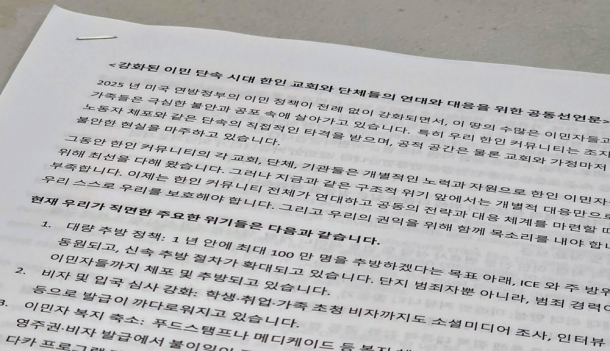 <강화된 이민 단속 시대 한인 교회와 단체들의 연대와 대응을 위한 공동선언문>
2025 년 미국 연방정부의 이민 정책이 전례 없이 강화되면서, 이 땅의 수많은 이민자들과
가족들은 극심한 불안과 공포 속에 살아가고 있습니다. 특히 우리 한인 커뮤니티는 조지
노동자 체포와 같은 단속의 직접적인 타격을 받으며, 공적 공간은 물론 교회와 가정마저
불안한 현실을 마주하고 있습니다.
그동안 한인 커뮤니티의 각 교회, 단체, 기관들은 개별적인 노력과 자원으로 한인 이민자
위해 최선을 다해 왔습니다. 그러나 지금과 같은 구조적 위기 앞에서는 개별적 대응만으로
부족합니다. 이제는 한인 커뮤니티 전체가 연대하고 공동의 전략과 대응 체계를 마련할 때
우리 스스로 우리를 보호해야 합니다. 그리고 우리의 권익을 위해 함께 목소리를 내야 합니
현재 우리가 직면한 주요한 위기들은 다음과 같습니다.
1. 대량 추방 정책: 1 년 안에 최대 100 만 명을 추방하겠다는 목표 아래, ICE 와 주 방위
동원되고, 신속 추방 절차가 확대되고 있습니다. 단지 범죄자뿐 아니라, 범죄 경력이
이민자들까지 체포 및 추방되고 있습니다.
2. 비자 및 입국 심사 강화: 학생·취업·가족 초청 비자까지도 소셜미디어 조사, 인터뷰
등으로 발급이 까다로워지고 있습니다.
3. 이민자 복지 축소: 푸드스탬프나 메디케이드 등 복지
영주권·비자 발급에서 불이익이
다카 프로그램